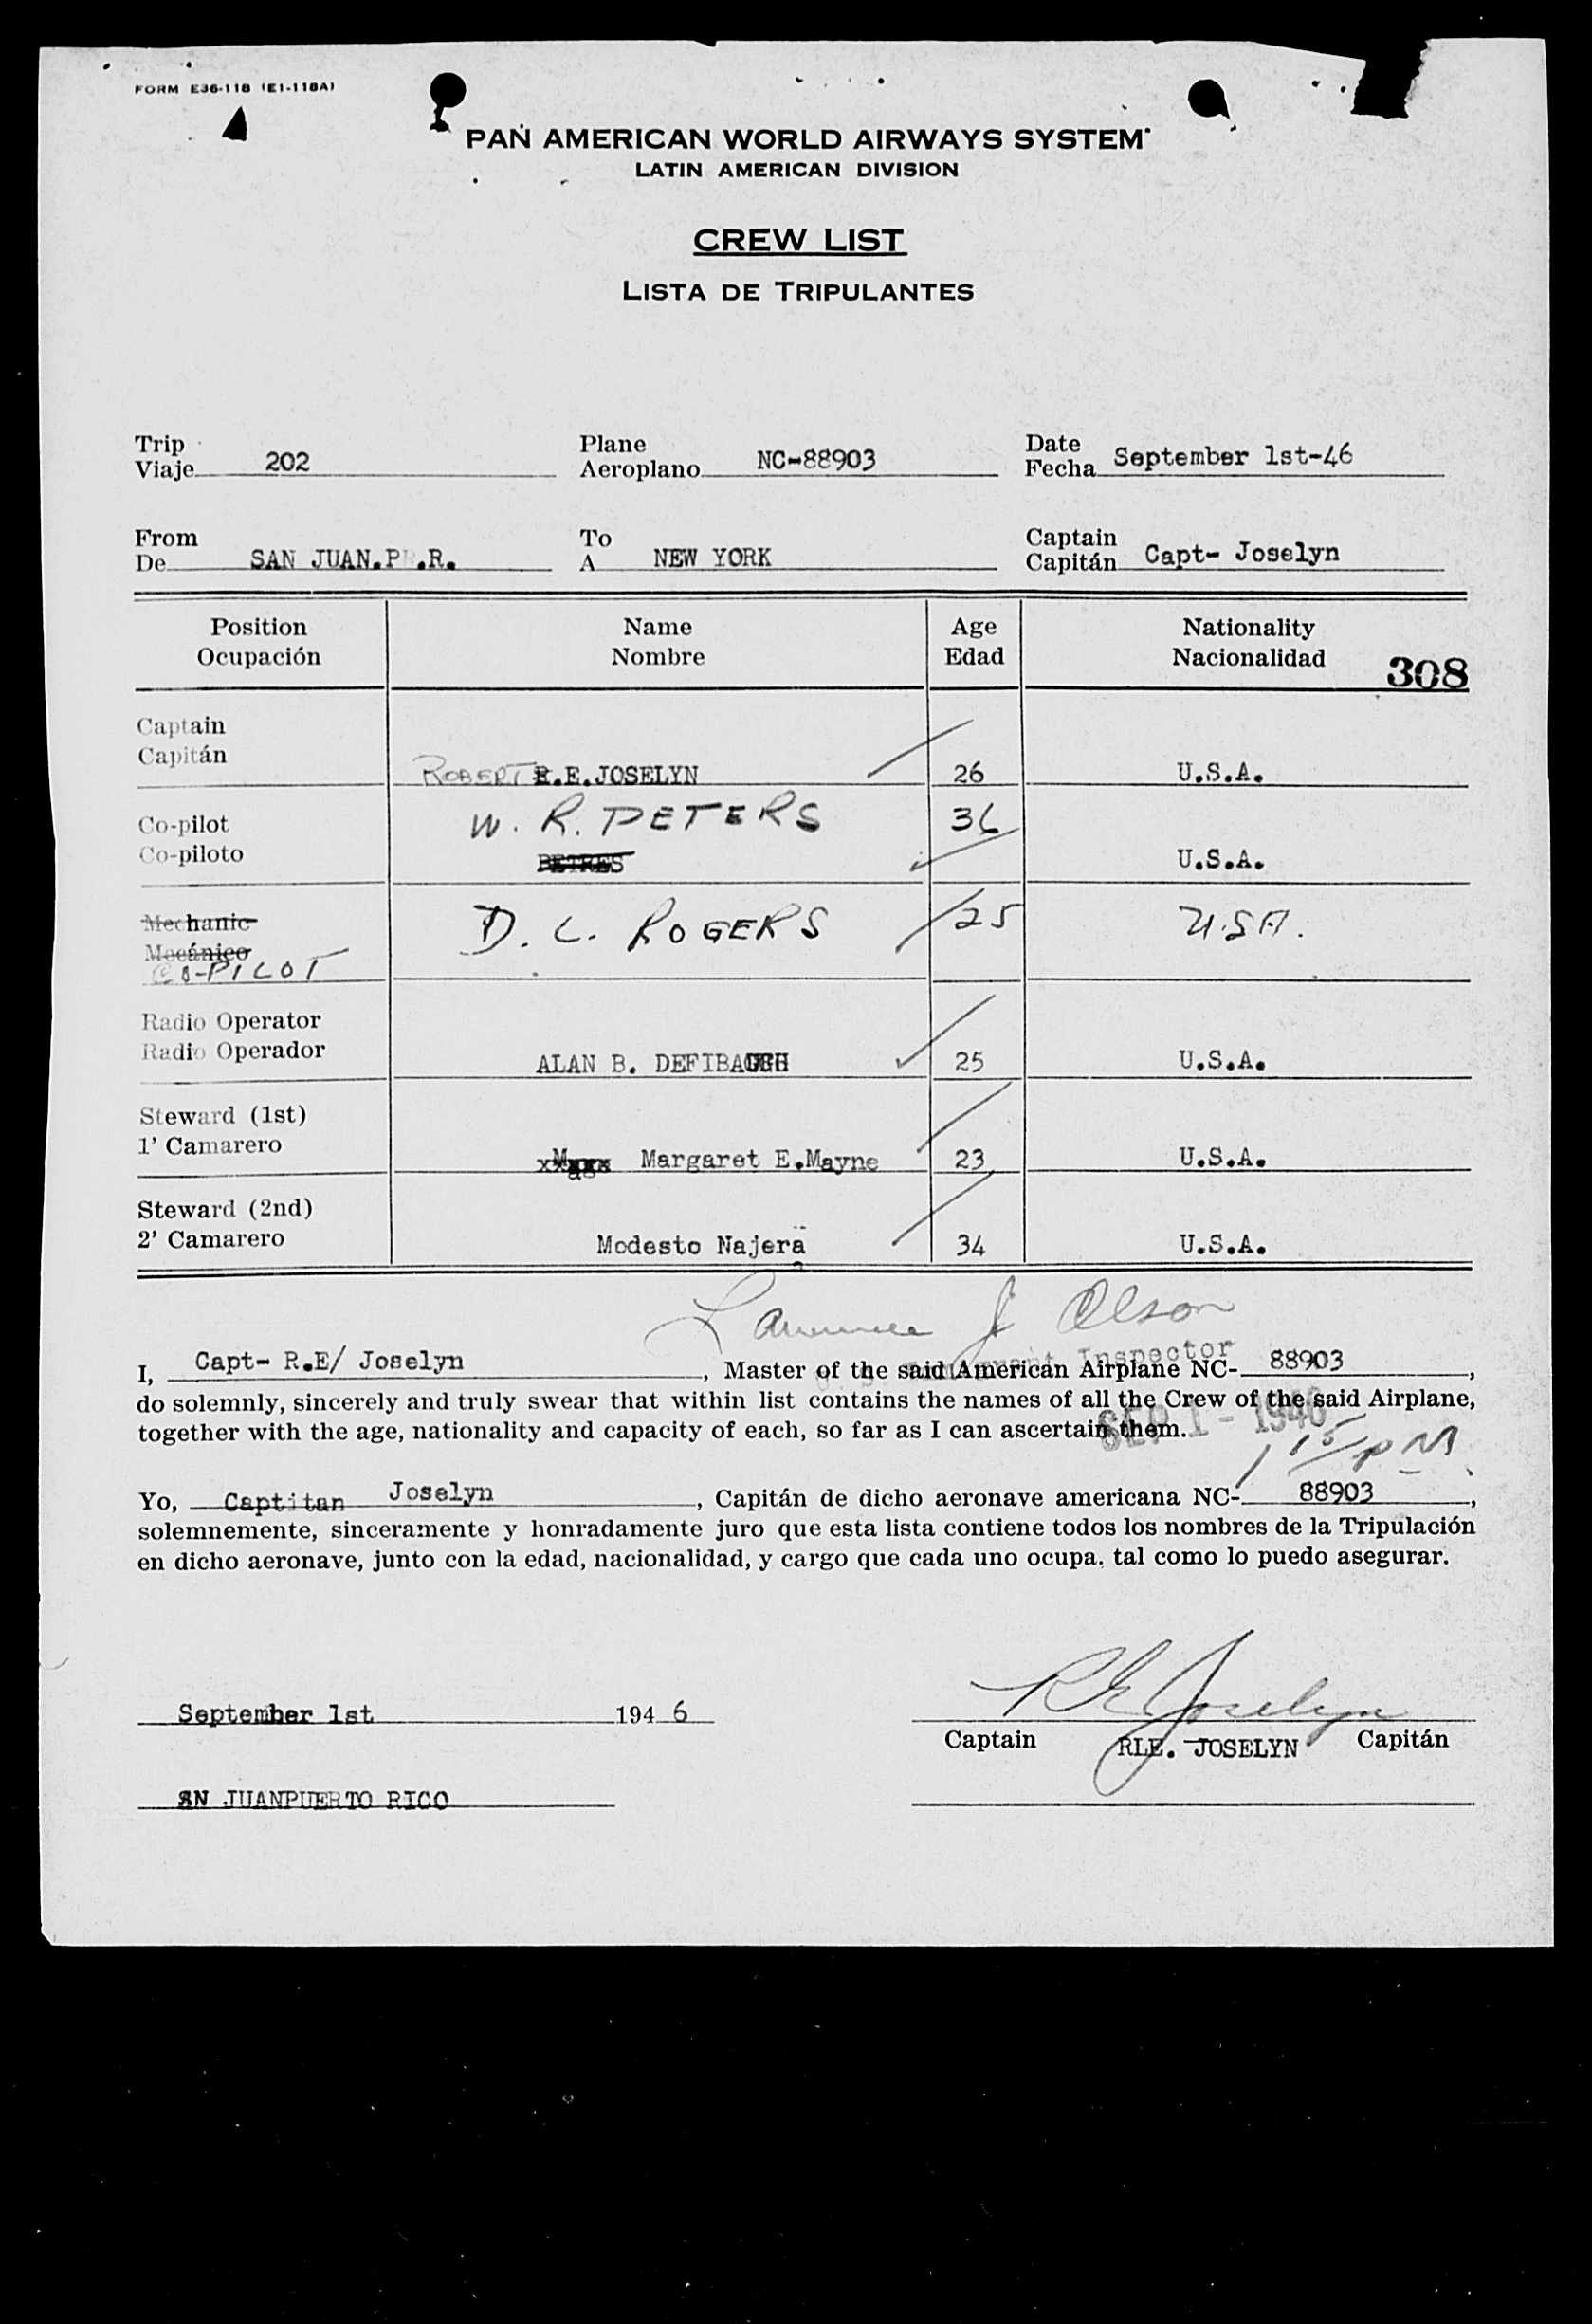 FORM E36-118 (E1-118A)
PAN AMERICAN WORLD AIRWAYS SYSTEM
LATIN AMERICAN DIVISION
CREW LIST
LISTA DE TRIPULANTES
Trip Plane Date
Viaje 202 Aeroplano NC-88903 Fecha September 1st-46
From To Captain
De SAN JUAN.P .R. A NEW YORK Capitán Capt- Joselyn
Position Name Age Nationality
Ocupación Nombre Edad Nacionalidad 308
Captain
Capitán ROBERT R.E.JOSELYN 26 U.S.A.
Co-pilot W. R. PETERS 36
Co-piloto BETRES U.S.A.
Mechanic D. L. ROGERS 25 U.S.A.
Mecánico
CO-PILOT
Radio Operator
Radio Operador ALAN B. DEFIBAUGH 25 U.S.A.
Steward (1st)
1' Camarero Margaret E.Mayne 23 U.S.A.
Steward (2nd)
2' Camarero Modesto Najera 34 U.S.A.
Lawrence J Olson
Immigrant Inspector
I, Capt- R.E/ Joselyn, Master of the said American Airplane NC- 88903,
do solemnly, sincerely and truly swear that within list contains the names of all the Crew of the said Airplane,
together with the age, nationality and capacity of each, so far as I can ascertain them.
SEP 1 - 1946
1 15/PM
Yo, Captitan Joselyn, Capitán de dicho aeronave americana NC- 88903,
solemnemente, sinceramente y honradamente juro que esta lista contiene todos los nombres de la Tripulación
en dicho aeronave, junto con la edad, nacionalidad, y cargo que cada uno ocupa. tal como lo puedo asegurar.
September 1st 194 6 R E Joselyn
Captain RLE. JOSELYN Capitán
SN JUANPUERTO RICO